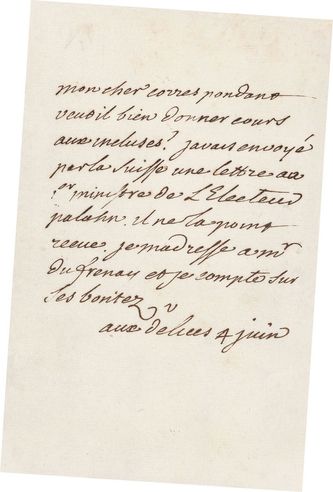 mon cher correspondant
veut il bien donner cours
aux incluses? javais envoyé
par la suisse une lettre au
1er ministre de L'Electeur
palatin. il ne la point
receue. je madresse a mr
du frenay et je compte sur
ses bontez V
aux delices 4 juin